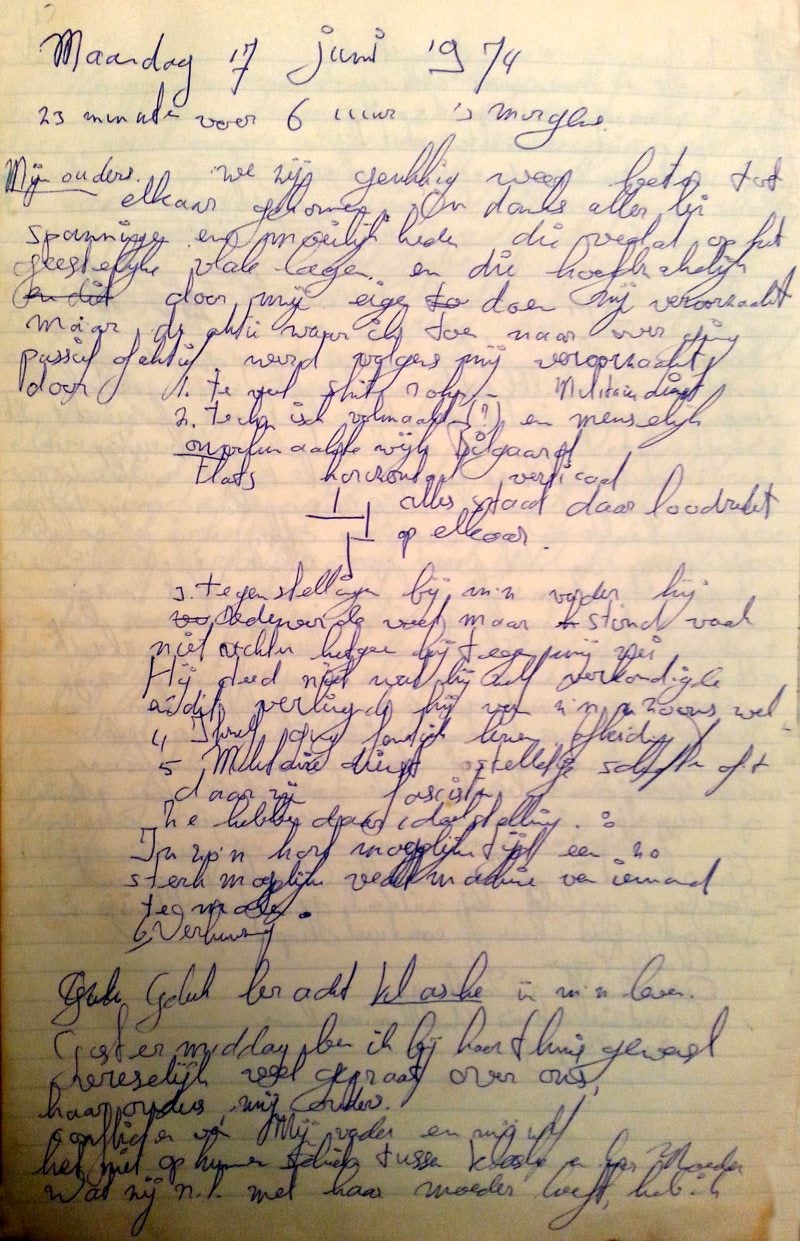 Maandag 17 juni 1974
23 minute voor 6 uur 's morgens.
Mijn ouders. we zijn gelukkig weer beter tot
elkaar gekomen. Ondanks allerlei
spanningen en moeilijkheden die veelal op het
geestelijke vlak lagen. en die hoofdzakelijk
en dit door mijn eigen to doen zijn veroorzaakt
maar de aktie waar ik toe naar over ging
passief of aktief, werd volgens mij veroorzaakt
door 1. te veel shit roken - Militair dienst
2. technisch volmaakte (?) en menselijk
onvolmaakte wijk
flats horizontaal verticaal
alles staat daar loodrecht
op elkaar.
3. tegenstellingen bij m'n vader hij
redeneerde veel maar stond vaak
niet achter hetgeen hij tegen mij zei
Hij deed niet wat hij zelf verkondigde
en dit verlangde hij van z'n zoons wel
4
5 Militaire dienst stelletje
daar zijn fascisten
Ze hebben daar 1 doelstelling :
In zo'n kort mogelijke tijd een zo
sterk mogelijke vechtmachine van iemand
te maken.
6. Verhuizing
Geluk bracht klaske in m'n leven.
Gistermiddag ben ik bij haar thuis geweest
vreselijk veel gepraat over ons,
haar ouders, mijn ouders.
conflicten van Mijn vader en mij
het niet op kunnen tussen Klaske en haar Moeder
Wat zij n.l. met haar moeder heeft, heb ik